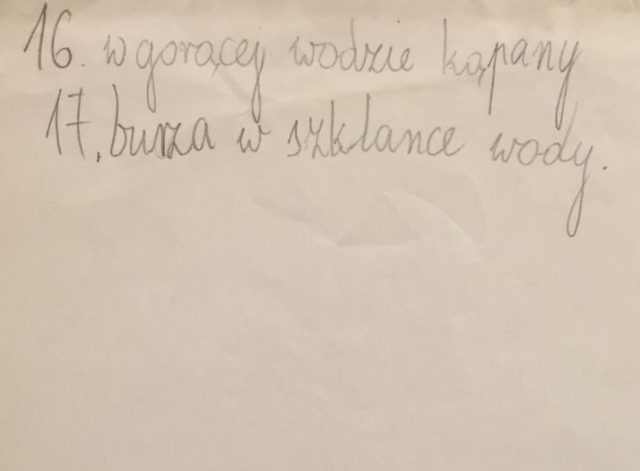 16. w gorącej wodzie kąpany
17. burza w szklance wody.